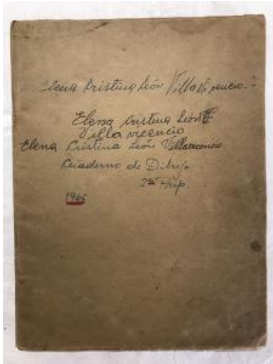 "Elena Cristina León Villavicencio."
Elena Cristina León
Villavicencio
Elena Cristina León Villavicencio
Cuaderno de Dibujo
Prep.
1945